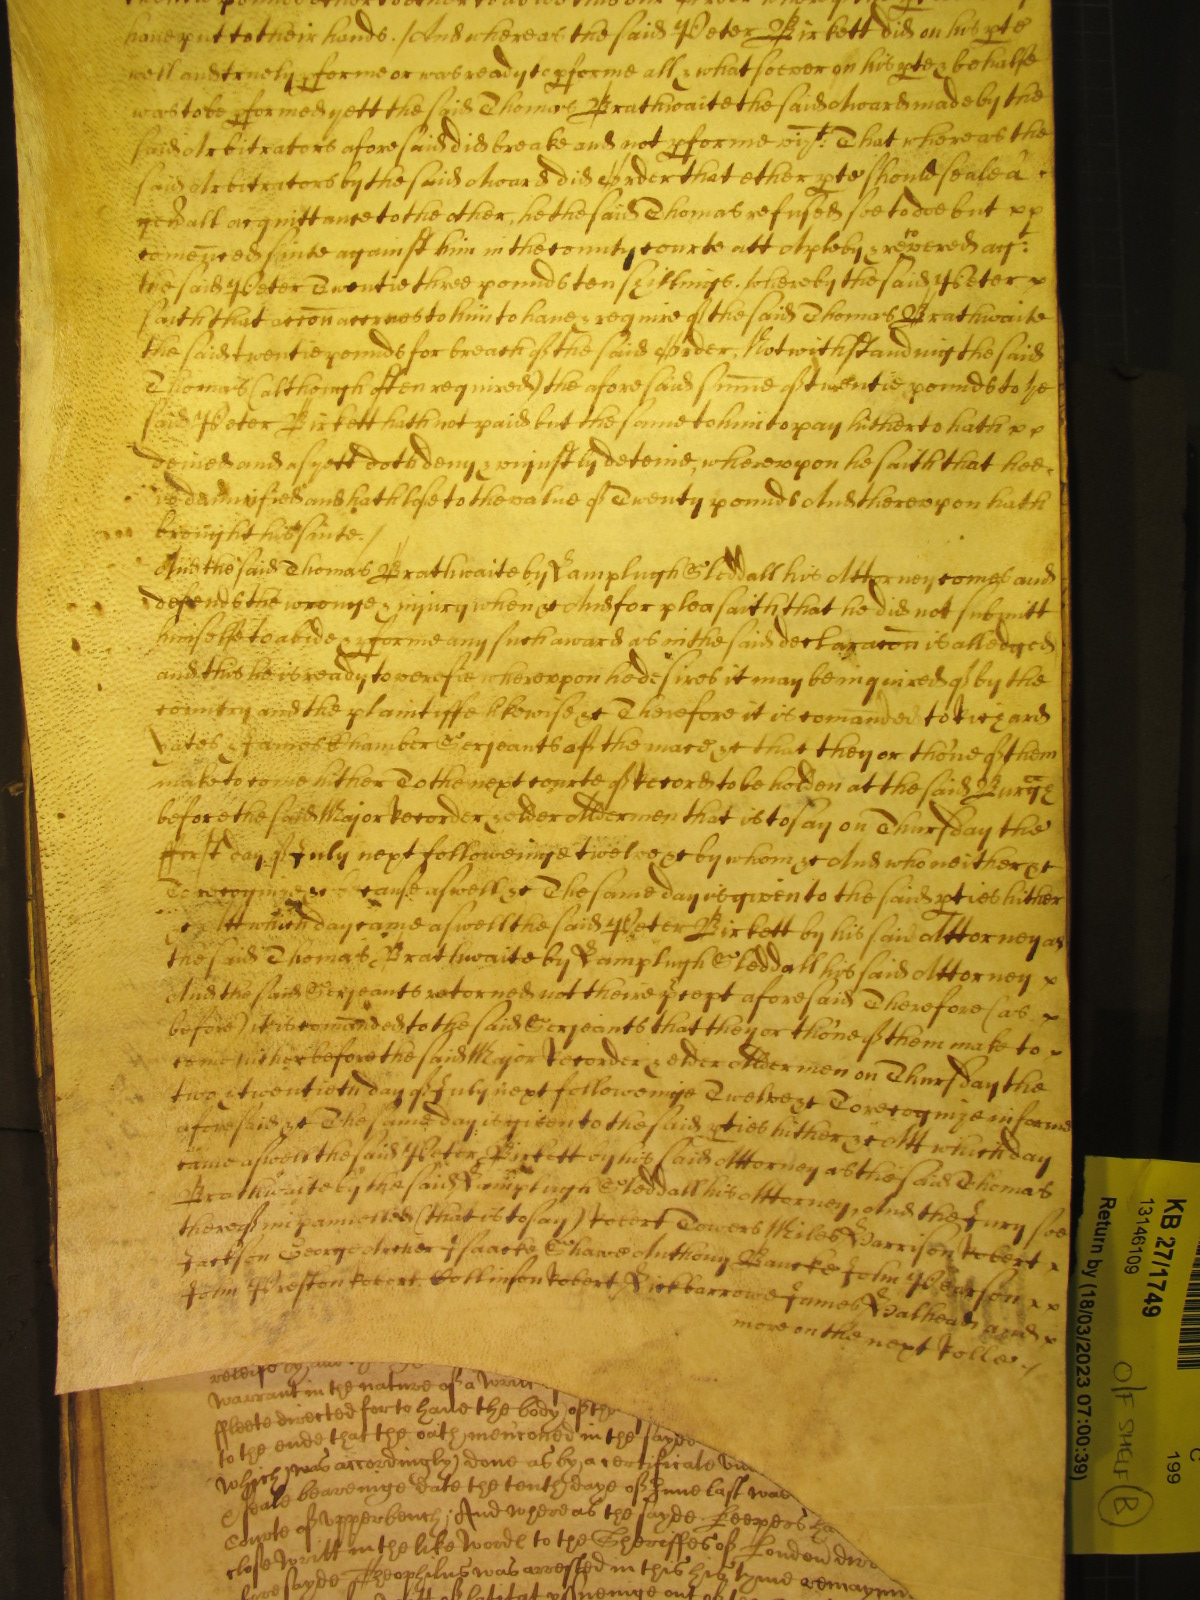 have put to their hands. / And whereas the said Peter Birkett did on his pte
well and truely pforme or was ready to pforme all & whatsoever on his pte & behalfe
was to be pformed yett the said Thomas Brathwaite the said Award made by the
said Arbitrators aforesaid did breake and not pforme vizt: That whereas the
said Arbitrators by the said Award did Order that ether pte should seale a
genall acquittance to the other, he the said Thomas refused soe to doe but x x
comenced suite against him in the county courte att Apleby & recovered agt:
the said Peter Twentie three pounds ten shillings. whereby the said Peter x
saith that accon accrues to him to have & require of the said Thomas Brathwaite
the said twentie pounds for breach of the said Order, Notwithstanding the said
Thomas (although often required) the aforesaid sume of twentie pounds to ye
said Peter Birkett hath not paid but the same to him to pay hitherto hath x x
denied and as yett doth deny & uniustly deteine, whereupon he saith that hee
is damnified and hath lose to the value of Twenty pounds And thereupon hath
brought his suite. /
And the said Thomas Brathwaite by Lamplugh Sleddall his Attorney comes and
defends the wronge & iniury when &c And for plea saith that he did not submitt
himselfe to abide & pforme any such award as in the said declaracon is alledged
and this he is ready to verefie whereupon he desires it may be inquired of by the
country and the plaintiffe likewise &c Therefore it is comanded to Richard
Yates & James Chamber Serjeants of the mace &c that they or thone of them
make to come hither To the next courte of Record to be holden at the said Burgh
before the said Major Recorder & elder Aldermen that is to say on Thursday the
ffirst day of July next followeinge twelve &c by whom &c And who neither &c
To recognize &c because aswell &c The same day is given to the said pties hither
&c Att which day came aswell the said Peter Birkett by his said Attorney as
the said Thomas Brathwaite by Lamplugh Sleddall his said Attorney x
And the said Serjeants retorned not theire pcept aforesaid Therefore (as x
before) it is comanded to the said Serjeants that they or thone of them make to x
come hither before the said Major Recorder & elder Aldermen on Thursday the
two & twentieth day of July next followeinge Twelve &c To recognize in forme
aforesaid &c The same day is given to the said pties hither &c Att which day
came aswell the said Peter Birkett by his said Attorney as the said Thomas
Brathwaite by the said Lamplugh Sleddall his Attorney And the Jury soe
thereof impannelled (that is to say) Robert Towers Miles Harrison Robert x
Jackson George Archer Isaacke Shawe Anthony Bancke John Pearson x x
John Preston Robert Collinson Robert Rickbarrowe James Walhead and x
more on the next Rolle. /
warrant in the nature of a writt
ffleete directed for to have the body of th
to the ende that the oath mencioned in the sayde
which was accordingly done as by a certificate
seale beareinge date the tenth daye of June last was
Courte of upperbench, And whereas the sayde Keepers
close writt in the like words to the Sheriffes of London
foresayde Theophilus was arrested in this his tyme remayn
KB 27/1749
13146109
Return by (18/03/2023 07:00:39)
C
199
Off SHELF B